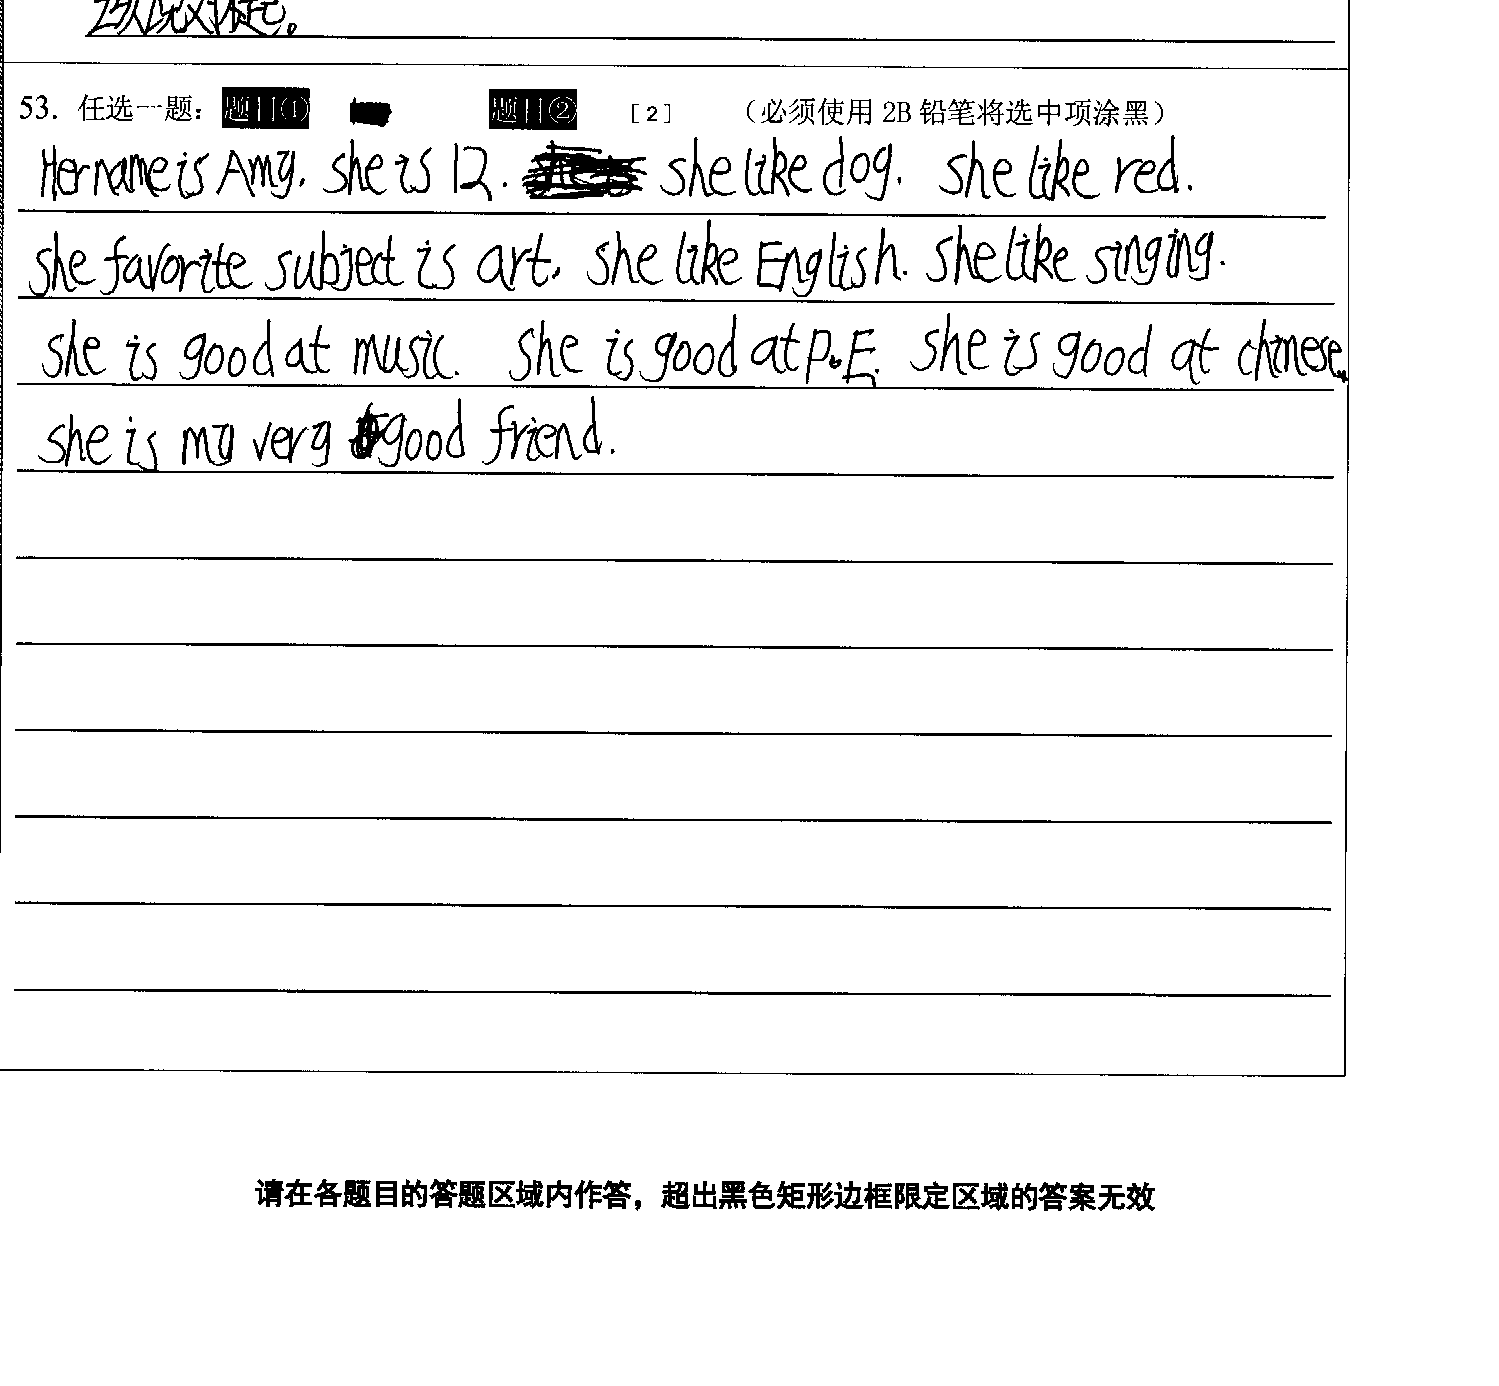 53. 任选一题: 题目① 题目② [2] (必须使用 2B 铅笔将选中项涂黑)
Her name is Amy. she is 12. she like dog. she like red.
she favorite subject is art. she like English. she like singing.
she is good at music. she is good at P.E. she is good at chinese.
she is my very good friend.
请在各题目的答题区域内作答，超出黑色矩形边框限定区域的答案无效